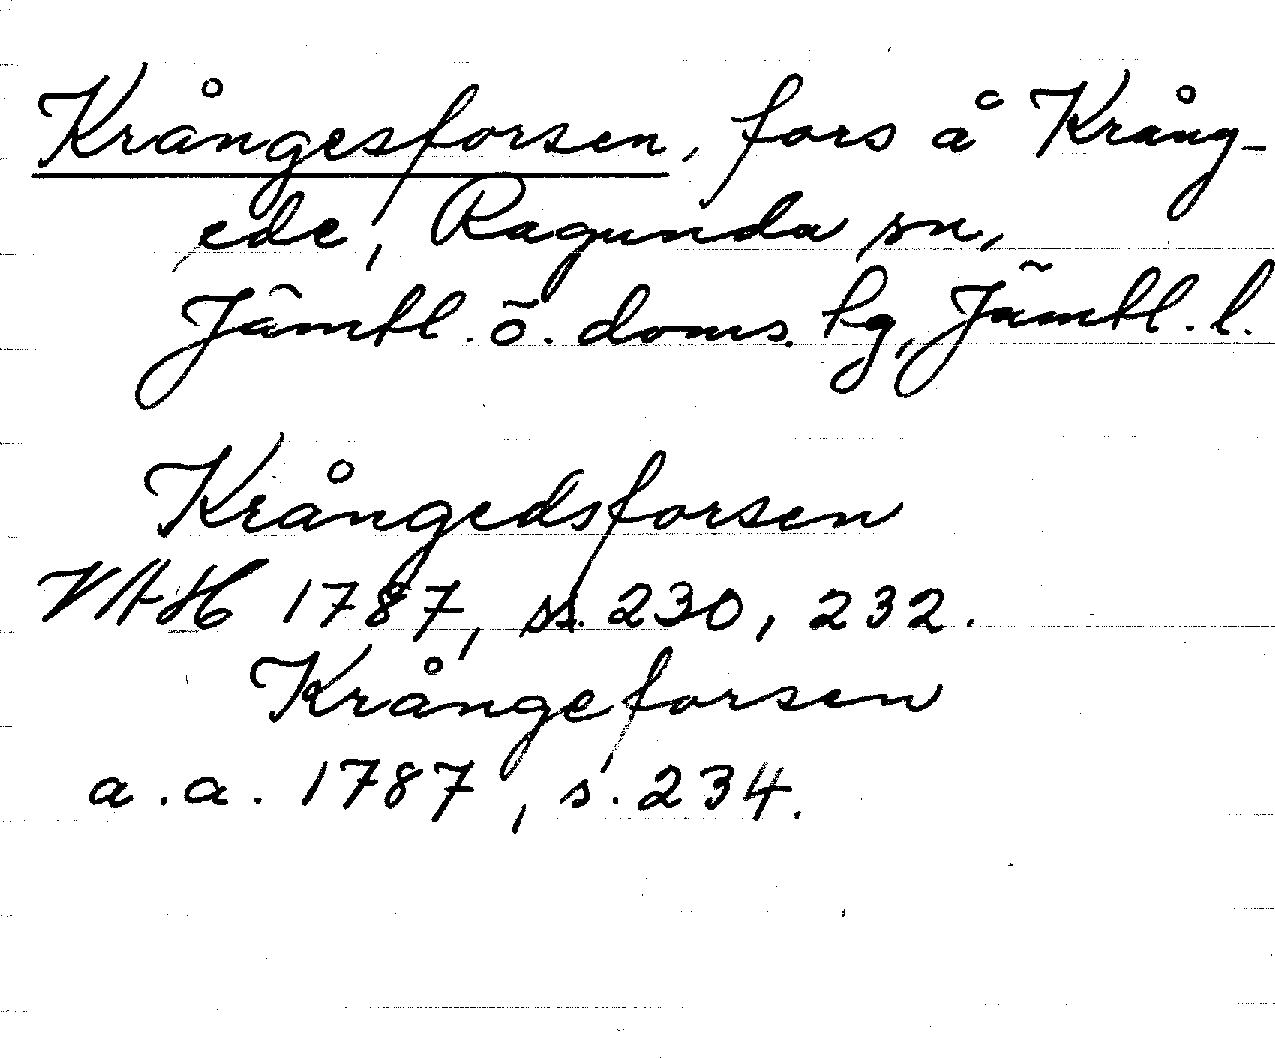 Krångesforsen, fors å Krång-
ede, Ragunda sn,
Jämtl. ö. doms. hg, Jämtl. l.
Krångedsforsen
VAH 1787, ss. 230, 232.
Krångeforsen
a.a. 1787, s. 234.